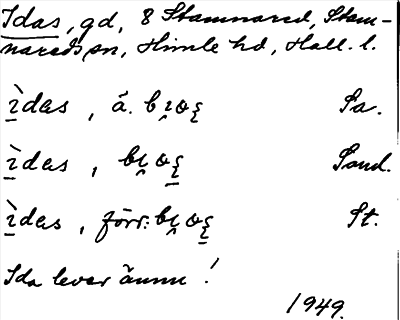 Idas, gd, 8 Stamnared, Stam-
nareds sn, Himle hd, Hall. l.
ı̀das, ä. Sa.
ı̀das, Sand.
ı̀das, förr: St.
Ida lever ännu!
1949.